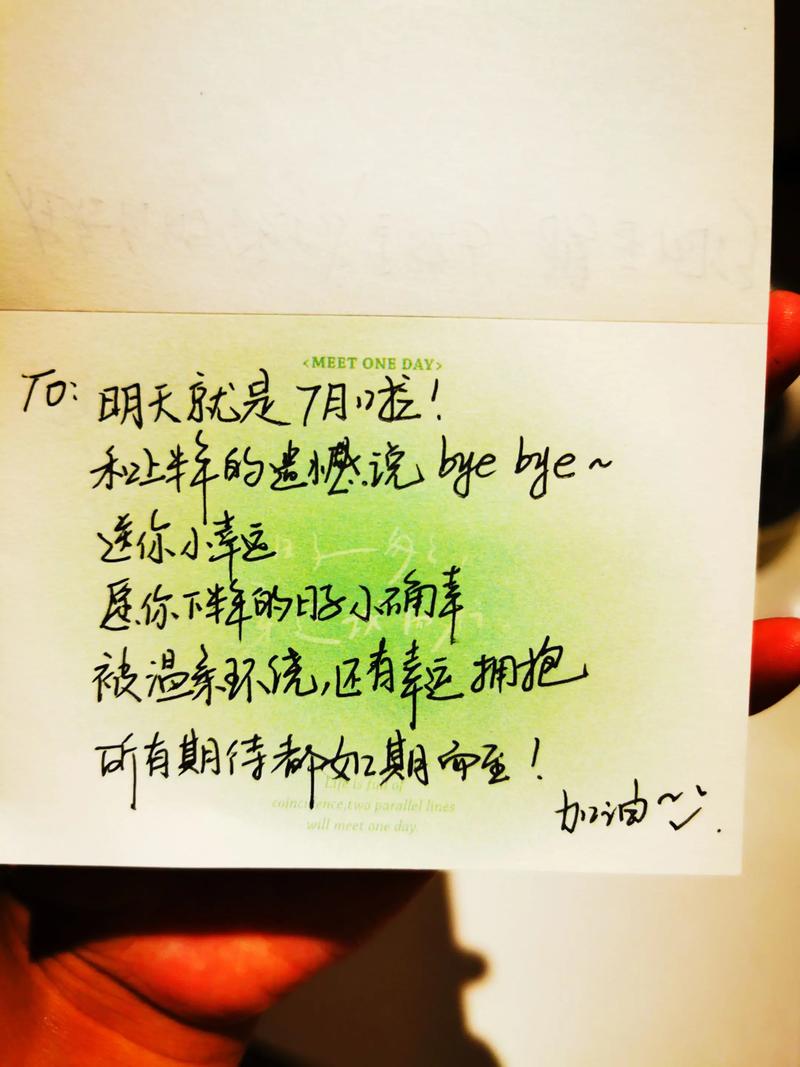 <MEET ONE DAY>
TO: 明天就是7月啦！
和上半年的遗憾说 bye bye ~
送你小幸运
愿你下半年的日子小确幸
被温柔环绕,还有幸运拥抱
所有期待都如期而至！
Life is full of
coincidence,two parallel lines
will meet one day.
加油~